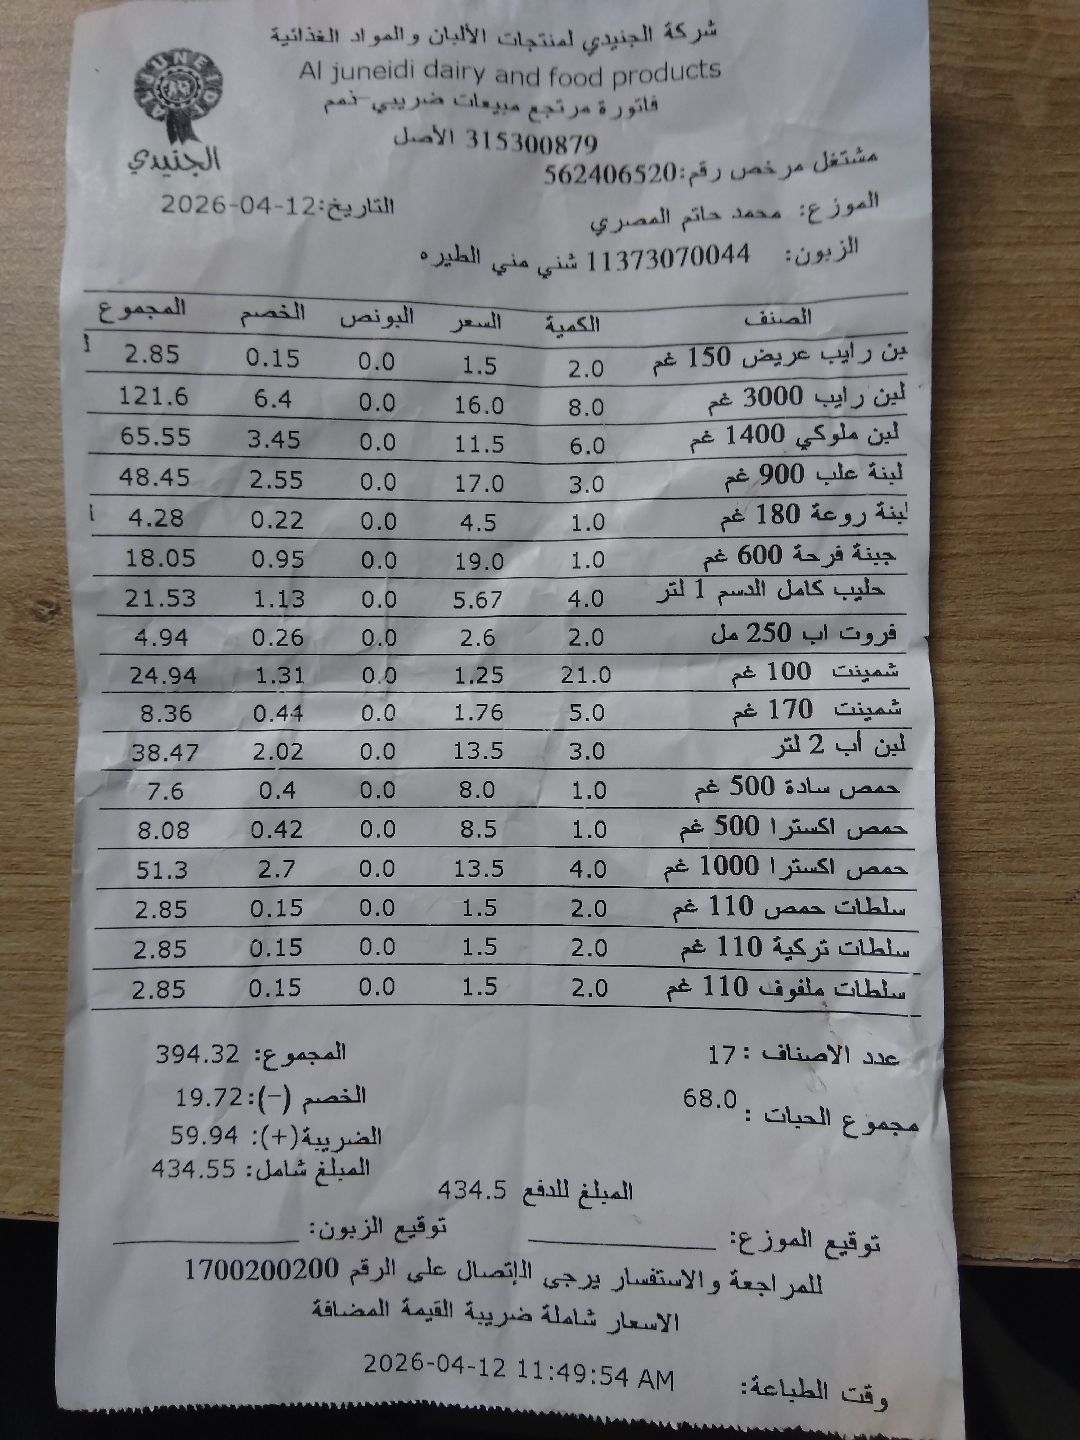 شركة الجنيدي لمنتجات الألبان والمواد الغذائية
Al juneidi dairy and food products
الجنيدي
فاتورة مرتجع مبيعات ضريبي-ذمم
315300879 الأصل
مشتغل مرخص رقم:562406520
الموزع: محمد حاتم المصري التاريخ:2026-04-12
الزبون: 11373070044 شني مني الطيره
الصنف الكمية السعر البونص الخصم المجموع
بن رايب عريض 150 غم 2.0 1.5 0.0 0.15 2.85
لبن رايب 3000 غم 8.0 16.0 0.0 6.4 121.6
لبن ملوكي 1400 غم 6.0 11.5 0.0 3.45 65.55
لبنة علب 900 غم 3.0 17.0 0.0 2.55 48.45
لبنة روعة 180 غم 1.0 4.5 0.0 0.22 4.28
جبنة فرحة 600 غم 1.0 19.0 0.0 0.95 18.05
حليب كامل الدسم 1 لتر 4.0 5.67 0.0 1.13 21.53
فروت اب 250 مل 2.0 2.6 0.0 0.26 4.94
شمينت 100 غم 21.0 1.25 0.0 1.31 24.94
شمينت 170 غم 5.0 1.76 0.0 0.44 8.36
لبن أب 2 لتر 3.0 13.5 0.0 2.02 38.47
حمص سادة 500 غم 1.0 8.0 0.0 0.4 7.6
حمص اكسترا 500 غم 1.0 8.5 0.0 0.42 8.08
حمص اكسترا 1000 غم 4.0 13.5 0.0 2.7 51.3
سلطات حمص 110 غم 2.0 1.5 0.0 0.15 2.85
سلطات تركية 110 غم 2.0 1.5 0.0 0.15 2.85
سلطات ملفوف 110 غم 2.0 1.5 0.0 0.15 2.85
عدد الاصناف : 17 المجموع: 394.32
مجموع الحبات : 68.0 الخصم (-):19.72
الضريبة(+): 59.94
المبلغ شامل: 434.55
المبلغ للدفع 434.5
توقيع الموزع: توقيع الزبون:
للمراجعة والاستفسار يرجى الإتصال على الرقم 1700200200
الاسعار شاملة ضريبة القيمة المضافة
وقت الطباعة: 2026-04-12 11:49:54 AM